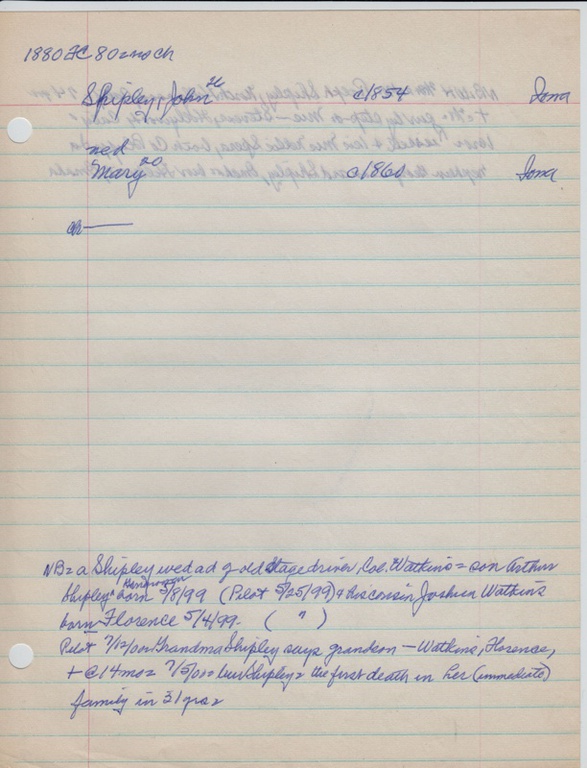 1880 FC 80 = no ch
Shipley, John 26 c1854 Iowa
wed
Mary 20 c1860 Iowa
ch —
NB = a Shipley wed a d of old Stage driver, Col. Watkins = son Arthur
Shipley born 5/8/99 (Pilot 5/25/99) + his cousin Joshua Watkins
born Florence 5/4/99. ( " )
Pilot 7/12/00 = Grandma Shipley says grandson — Watkins, Florence,
+ @ 14 mo = 7/5/00 = Shipley = the first death in her (immediate)
family in 31 yrs =